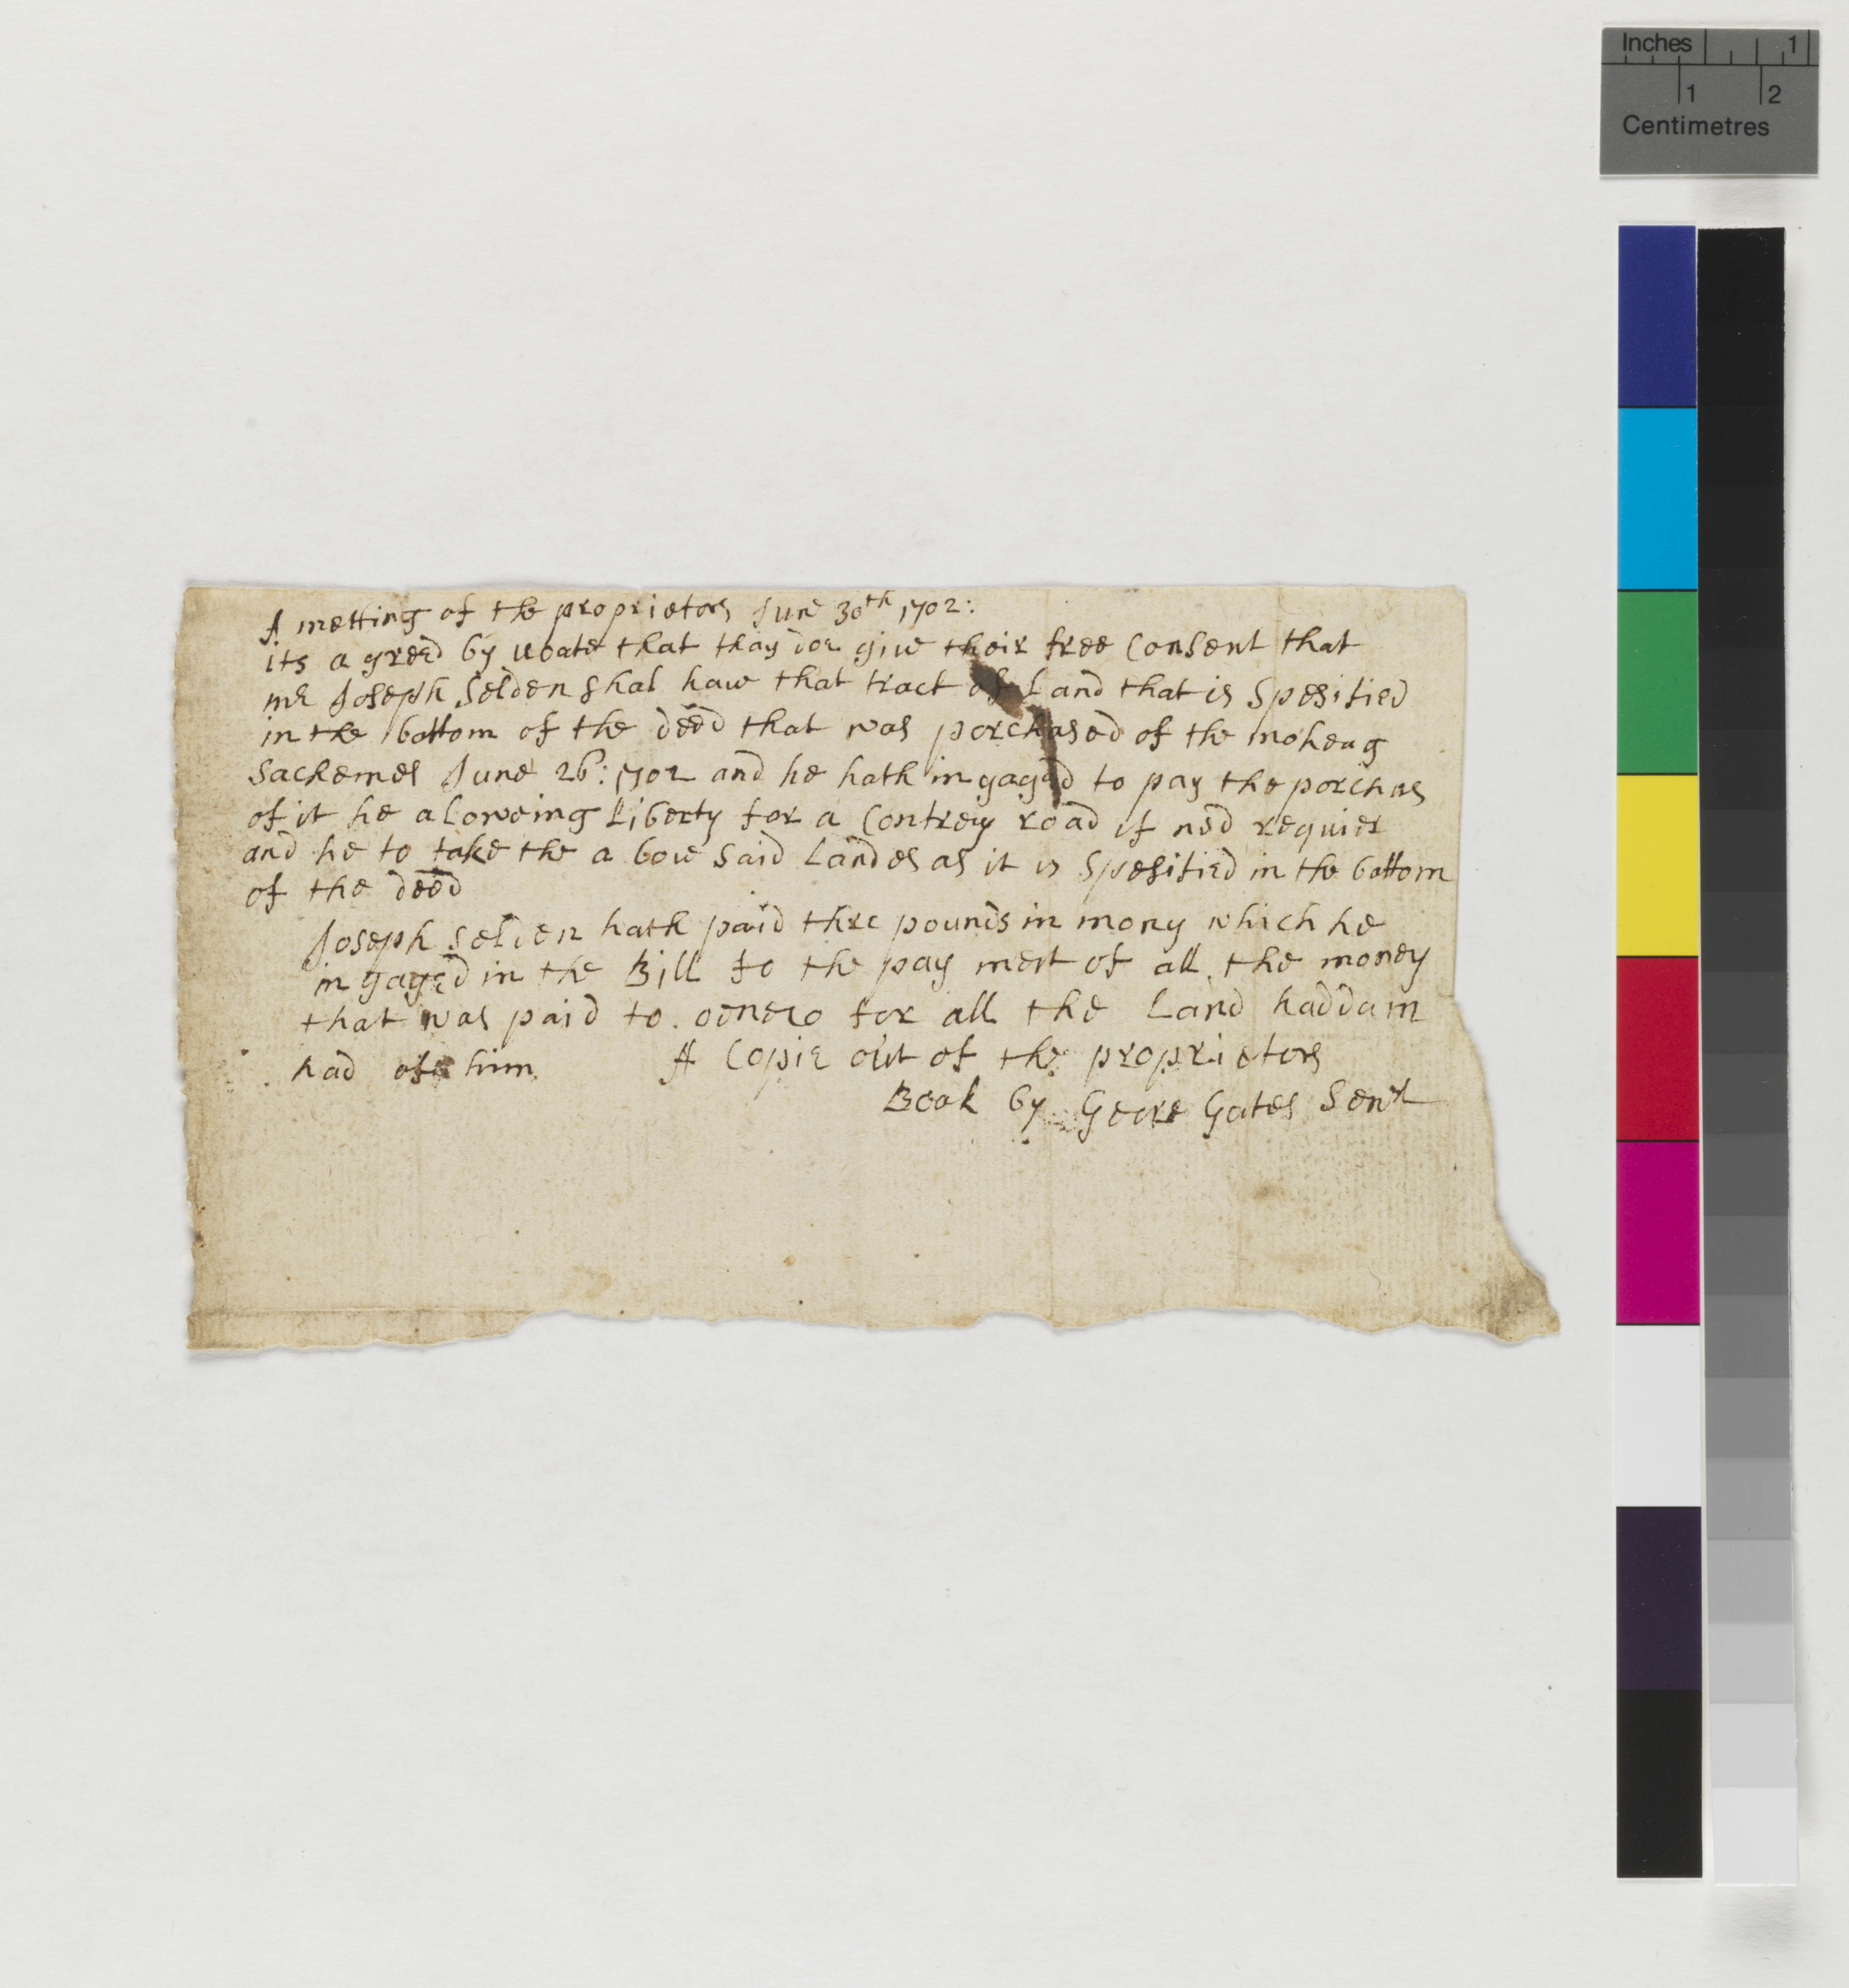 A metting of the proprietors June 30th 1702:
its a greed by uoate that thay doe giue their free Consent that
mr Joseph Selden shal haue that tract of Land that is Spesified
in the bottom of the deed that was porchased of the moheag
Sachemes June 26: 1702 and he hath ingaged to pay the porchas
of it he aloweing Liberty for a Contrey road if ned requier
and he to take the a boue said Landes as it is Spesified in the bottom
of the deed
Joseph Selden hath paid thre pounds in mony which he
in gaged in the Bill to the pay ment of all the money
that was paid to oeneco for all the Land haddam
had of him A Copie out of the proprietors
Book by Geore Gates Senr
Inches 1
1 2
Centimetres